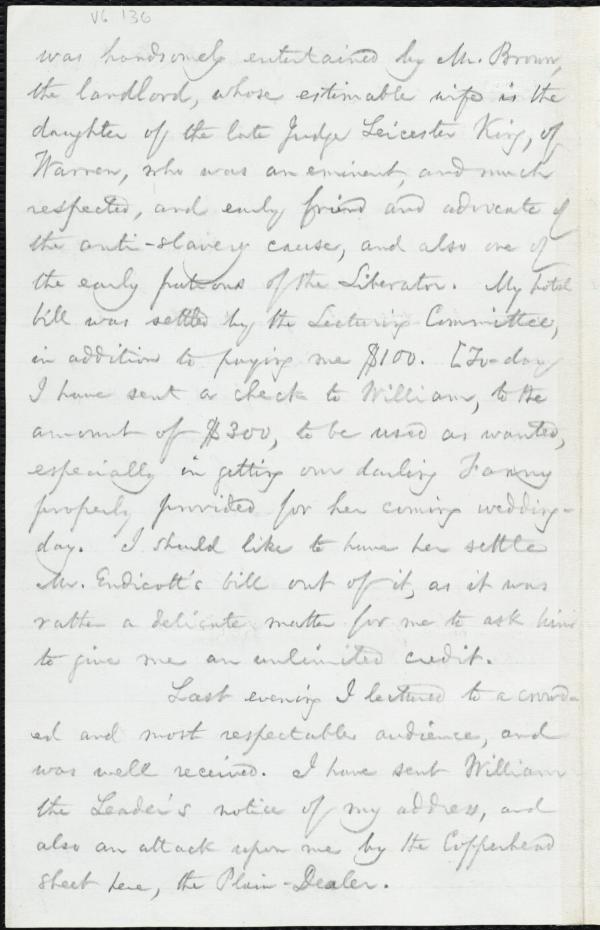 V6 136
was handsomely entertained by Mr. Brown,
the landlord, whose estimable wife is the
daughter of the late Judge Leicester King, of
Warren, who was an eminent, and much
respected, and early friend and advocate of
the anti-slavery cause, and also one of
the early patrons of the Liberator. My hotel
bill was settled by the Lecturing Committee,
in addition to paying me $100. [To-day
I have sent a check to William, to the
amount of $300, to be used as wanted,
especially in getting our darling Fanny
properly provided for her coming wedding-
day. I should like to have her settle
Mr. Endicott's bill out of it, as it was
rather a delicate matter for me to ask him
to give me an unlimited credit.
Last evening I lectured to a crowd-
ed and most respectable audience, and
was well received. I have sent William
the Leader's notice of my address, and
also an attack upon me by the Copperhead
sheet here, the Plain-Dealer.